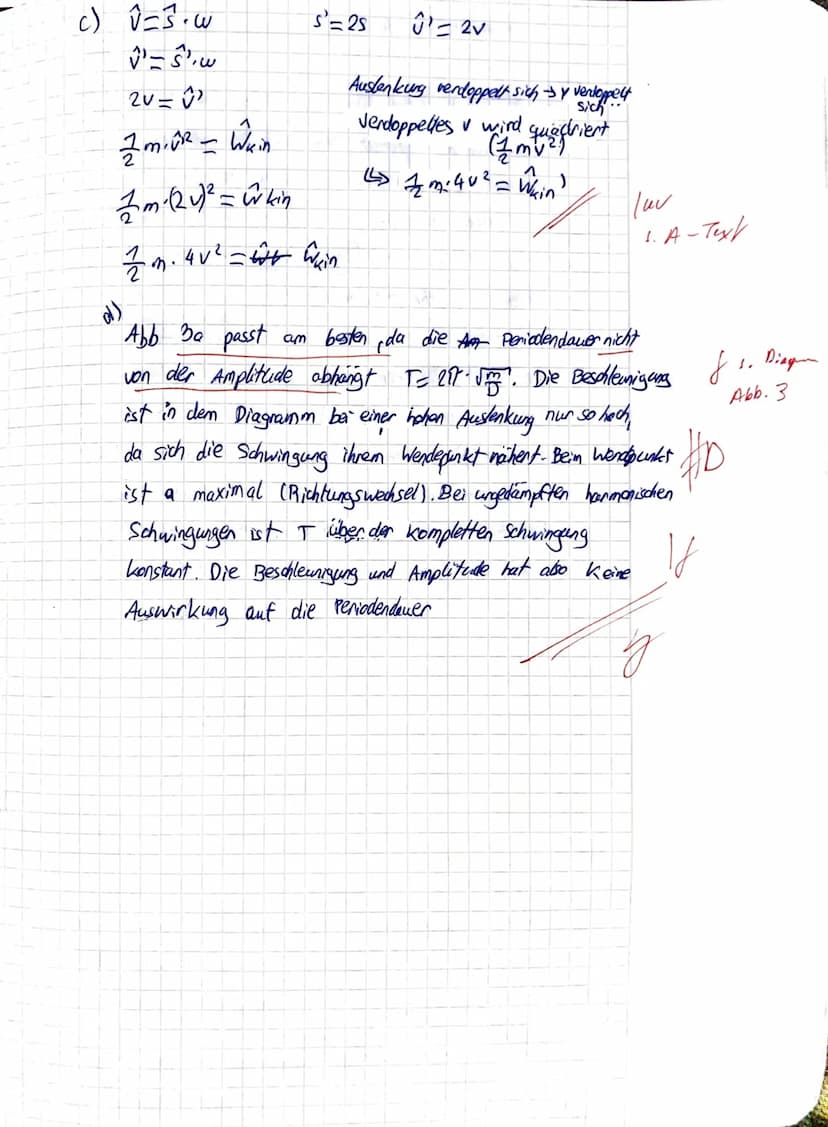 c) v̂=ŝ·w s'=2s v̂'=2v
v̂'=ŝ'·w
2v=v̂'
Auslenkung verdoppelt sich → v verdoppelt
sich
1/2 m·v̂'² = Ŵkin
verdoppeltes v wird quadriert
(1/2 mv²)
↳ 1/2 m·4v² = Ŵkin)
1/2 m·(2v)² = Ŵkin
1/2 m·4v² = Ŵkin
s. A-Text
d)
Abb 3a passt am besten, da die Periodendauer nicht
von der Amplitude abhängt T=2π·√m/D. Die Beschleunigung
f s. Diagr
Abb. 3
ist in dem Diagramm bei einer hohen Auslenkung nur so hoch,
da sich die Schwingung ihrem Wendepunkt nähert. Beim Wendpunkt
ist a maximal (Richtungswechsel). Bei ungedämpften harmonischen
Schwingungen ist T über der kompletten Schwingung
konstant. Die Beschleunigung und Amplitude hat also keine
Auswirkung auf die Periodendauer